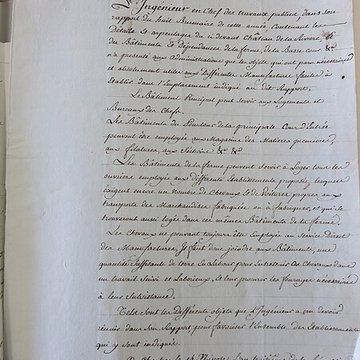 L'Ingénieur en Chef des travaux publics dans son
rapport du huit Brumaire de cette année, Contenant les
Détails et aperçus du ci devant Château de la
des Bâtiments & Dépendances de la ferme, de la Basse cour &c
a présenté aux administrations que les objets qui ont paru nécessaires
et absolument utiles aux différentes Manufactures faciles à
établir dans l'Emplacement indiqué au dit Rapport.
Le Bâtiment Principal peut servir aux Logements et
Bureaux des Chefs.
Les Bâtiments du Pourtour de la principale Cour d'Entrée
peuvent être employés aux Magasins des Matières premières,
aux filatures, aux Séchoirs &c &c
Les Bâtiments de la ferme peuvent servir à Loger tous les
ouvriers employés aux différents établissements proposés, lesquels
exigent encore un nombre de Chevaux et de voitures propres aux
transports des Marchandises fabriquées ou à fabriquer et qui se
trouveront aussi logés dans ces mêmes Bâtiments de la ferme.
Les Chevaux ne pouvant toujours être Employés au Service Direct
des Manufactures, il faut donc joindre aux Bâtiments, une
quantité suffisante de terre Labour pour entretenir les Chevaux dans
un travail suivi et Laborieux, et leur procurer les fourages nécessaires
à leur Subsistance.
Tels sont les différents objets que l'Ingénieur a cru devoir
réunir dans son Rapport pour favoriser l'Ensemble des Etablissements
qui y sont indiqués.